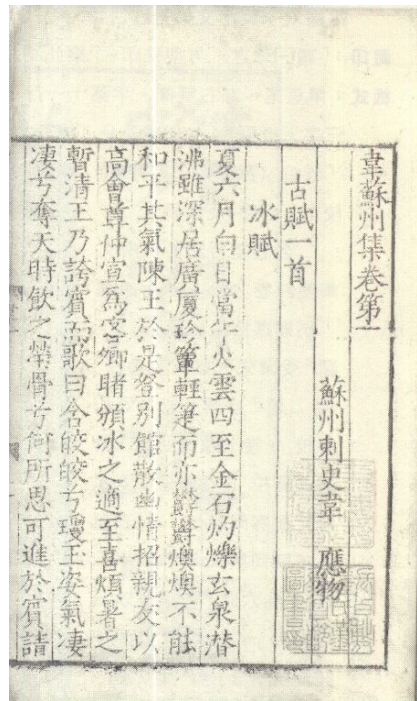 韋蘇州集卷第一
蘇州刺史韋 應物
古賦一首
冰賦
夏六月白日當午火雲四至金石灼爍玄泉潛
沸雖深居廣廈珍簟輕箑而亦鬱鬱燠燠不能
和平其氣陳王於是登別館散幽情招親友以
高會尊仲宣爲客卿睹頒冰之適至喜煩暑之
暫清王乃誇賓而歌曰含皎皎兮瓊玉姿氣凄
凄兮奪天時飲之瑩骨兮何所思可進於賓請